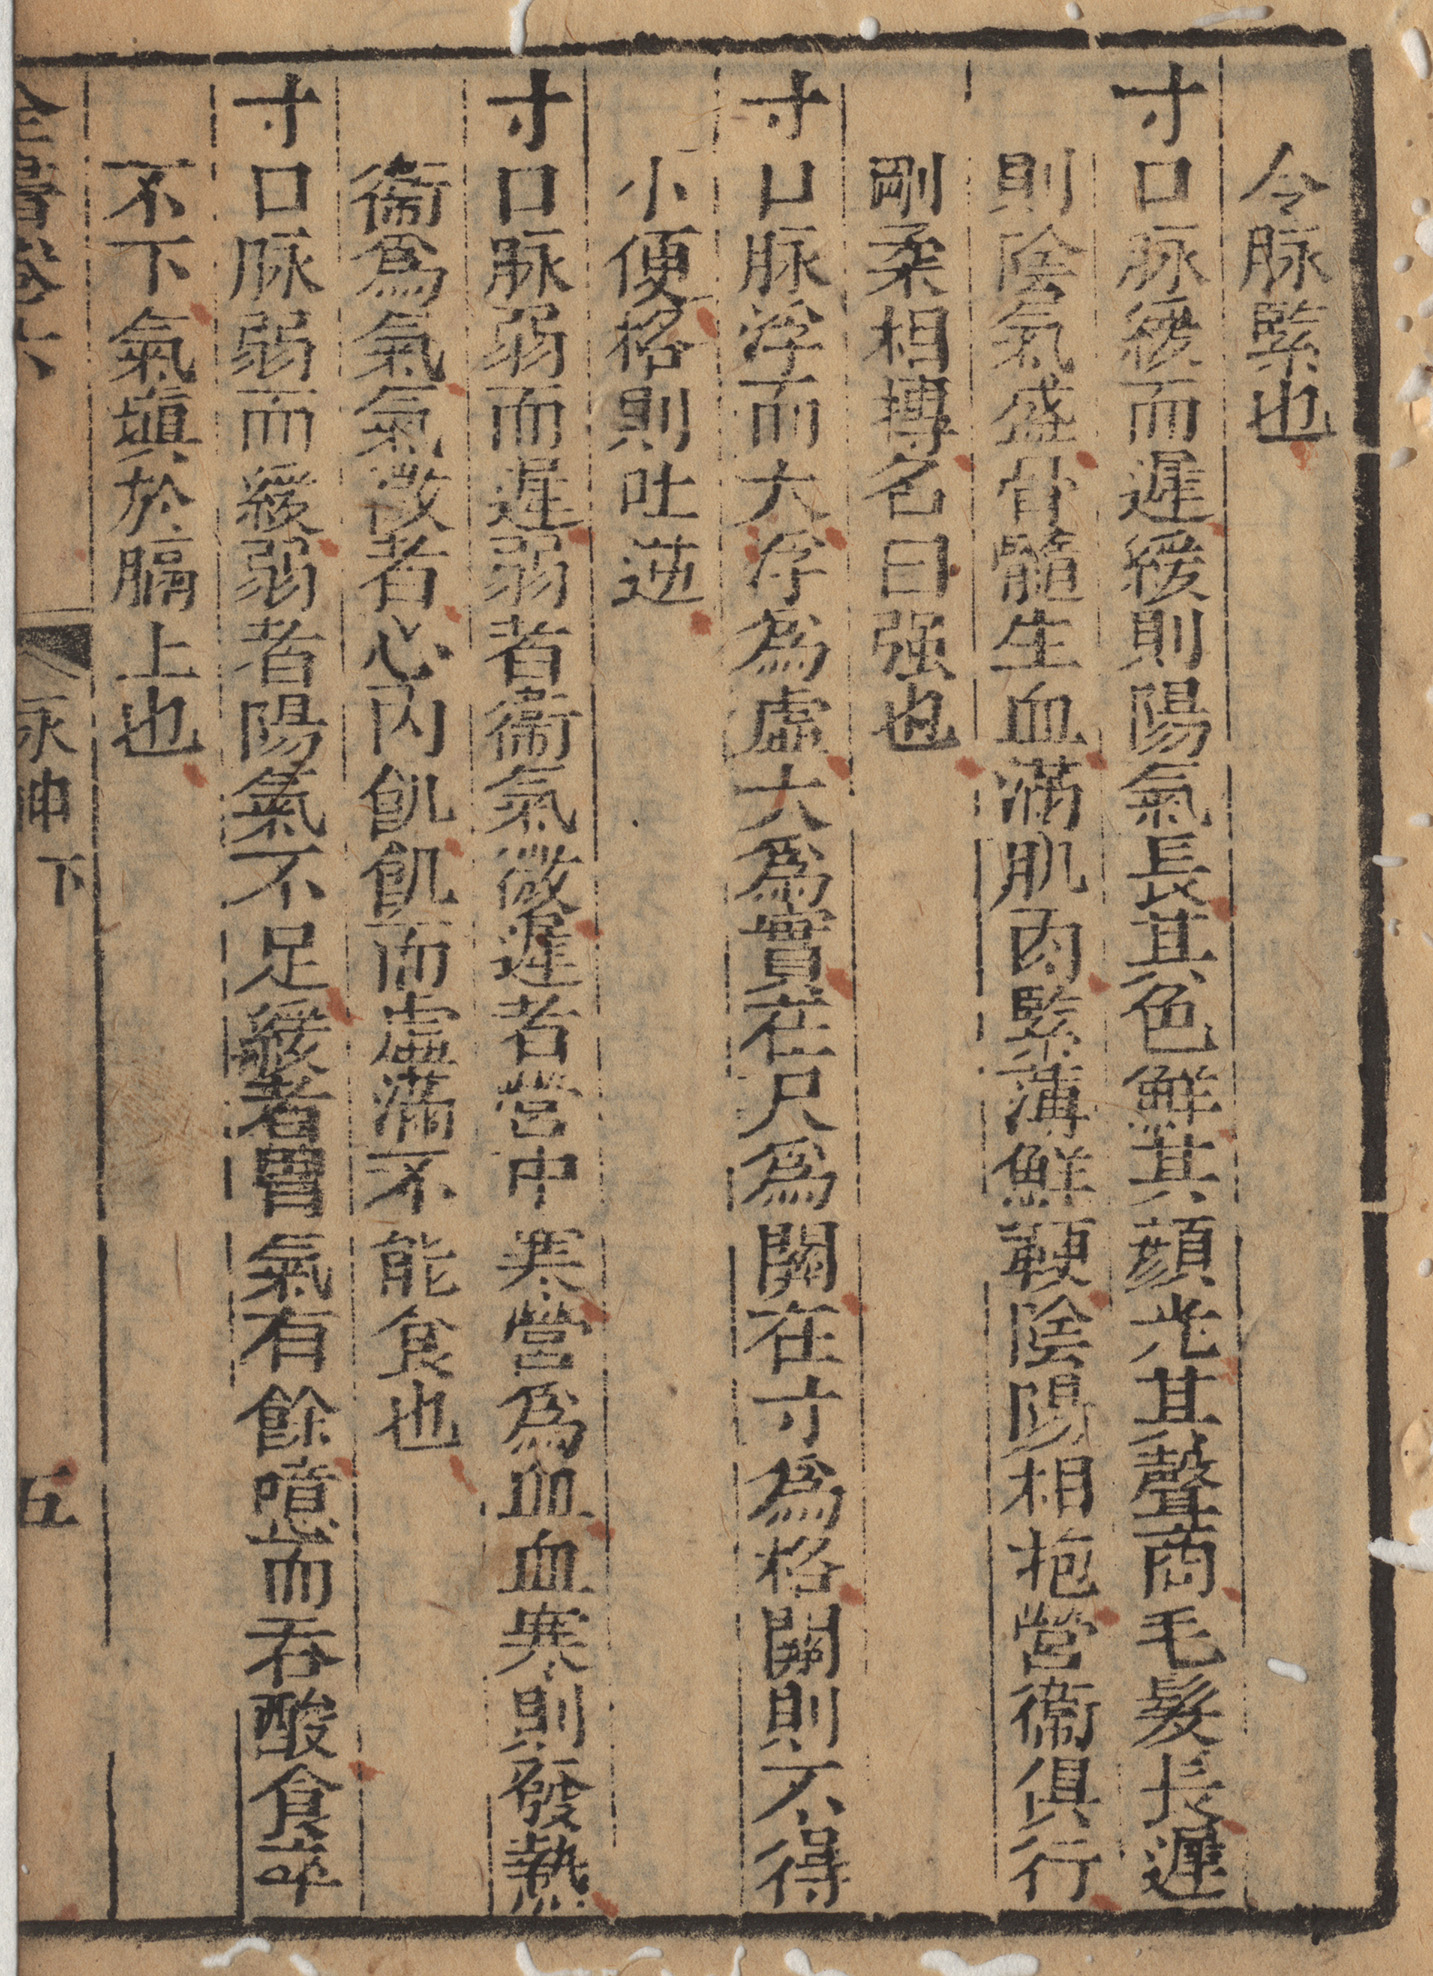 令脉緊也
寸口脉緩而遲緩則陽氣長其色鮮其顔光其聲商毛髮長遲
則陰氣盛骨髓生血滿肌肉緊薄鮮鞕陰陽相抱營衞俱行
剛柔相搏名曰强也
寸口脉浮而大浮爲虛大爲實在尺爲關在寸爲格關則不得
小便格則吐逆
寸口脉弱而遲弱者衞氣微遲者營中寒營爲血血寒則發熱
衞爲氣氣微者心內飢飢而虛滿不能食也
寸口脉弱而緩弱者陽氣不足緩者胃氣有餘噫而吞酸食卒
不下氣塡於膈上也
全書卷六 永 下 五